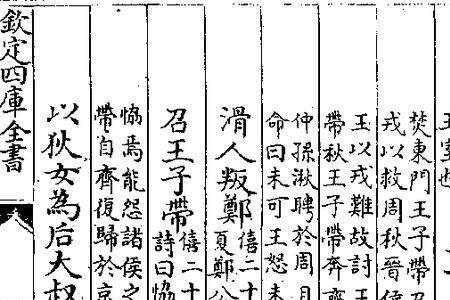 王室也
焚東門王子帶
戎以救周秋晉
王以戎難故討王
帶秋王子帶奔齊
仲孫湫聘於周且
命曰未可王怒未
滑人叛鄭僖二十
夏鄭公
召王子帶僖二十
詩曰協
協焉能怨諸侯之
帶自齊復歸於京
以狄女為后大叔
欽定四庫全書